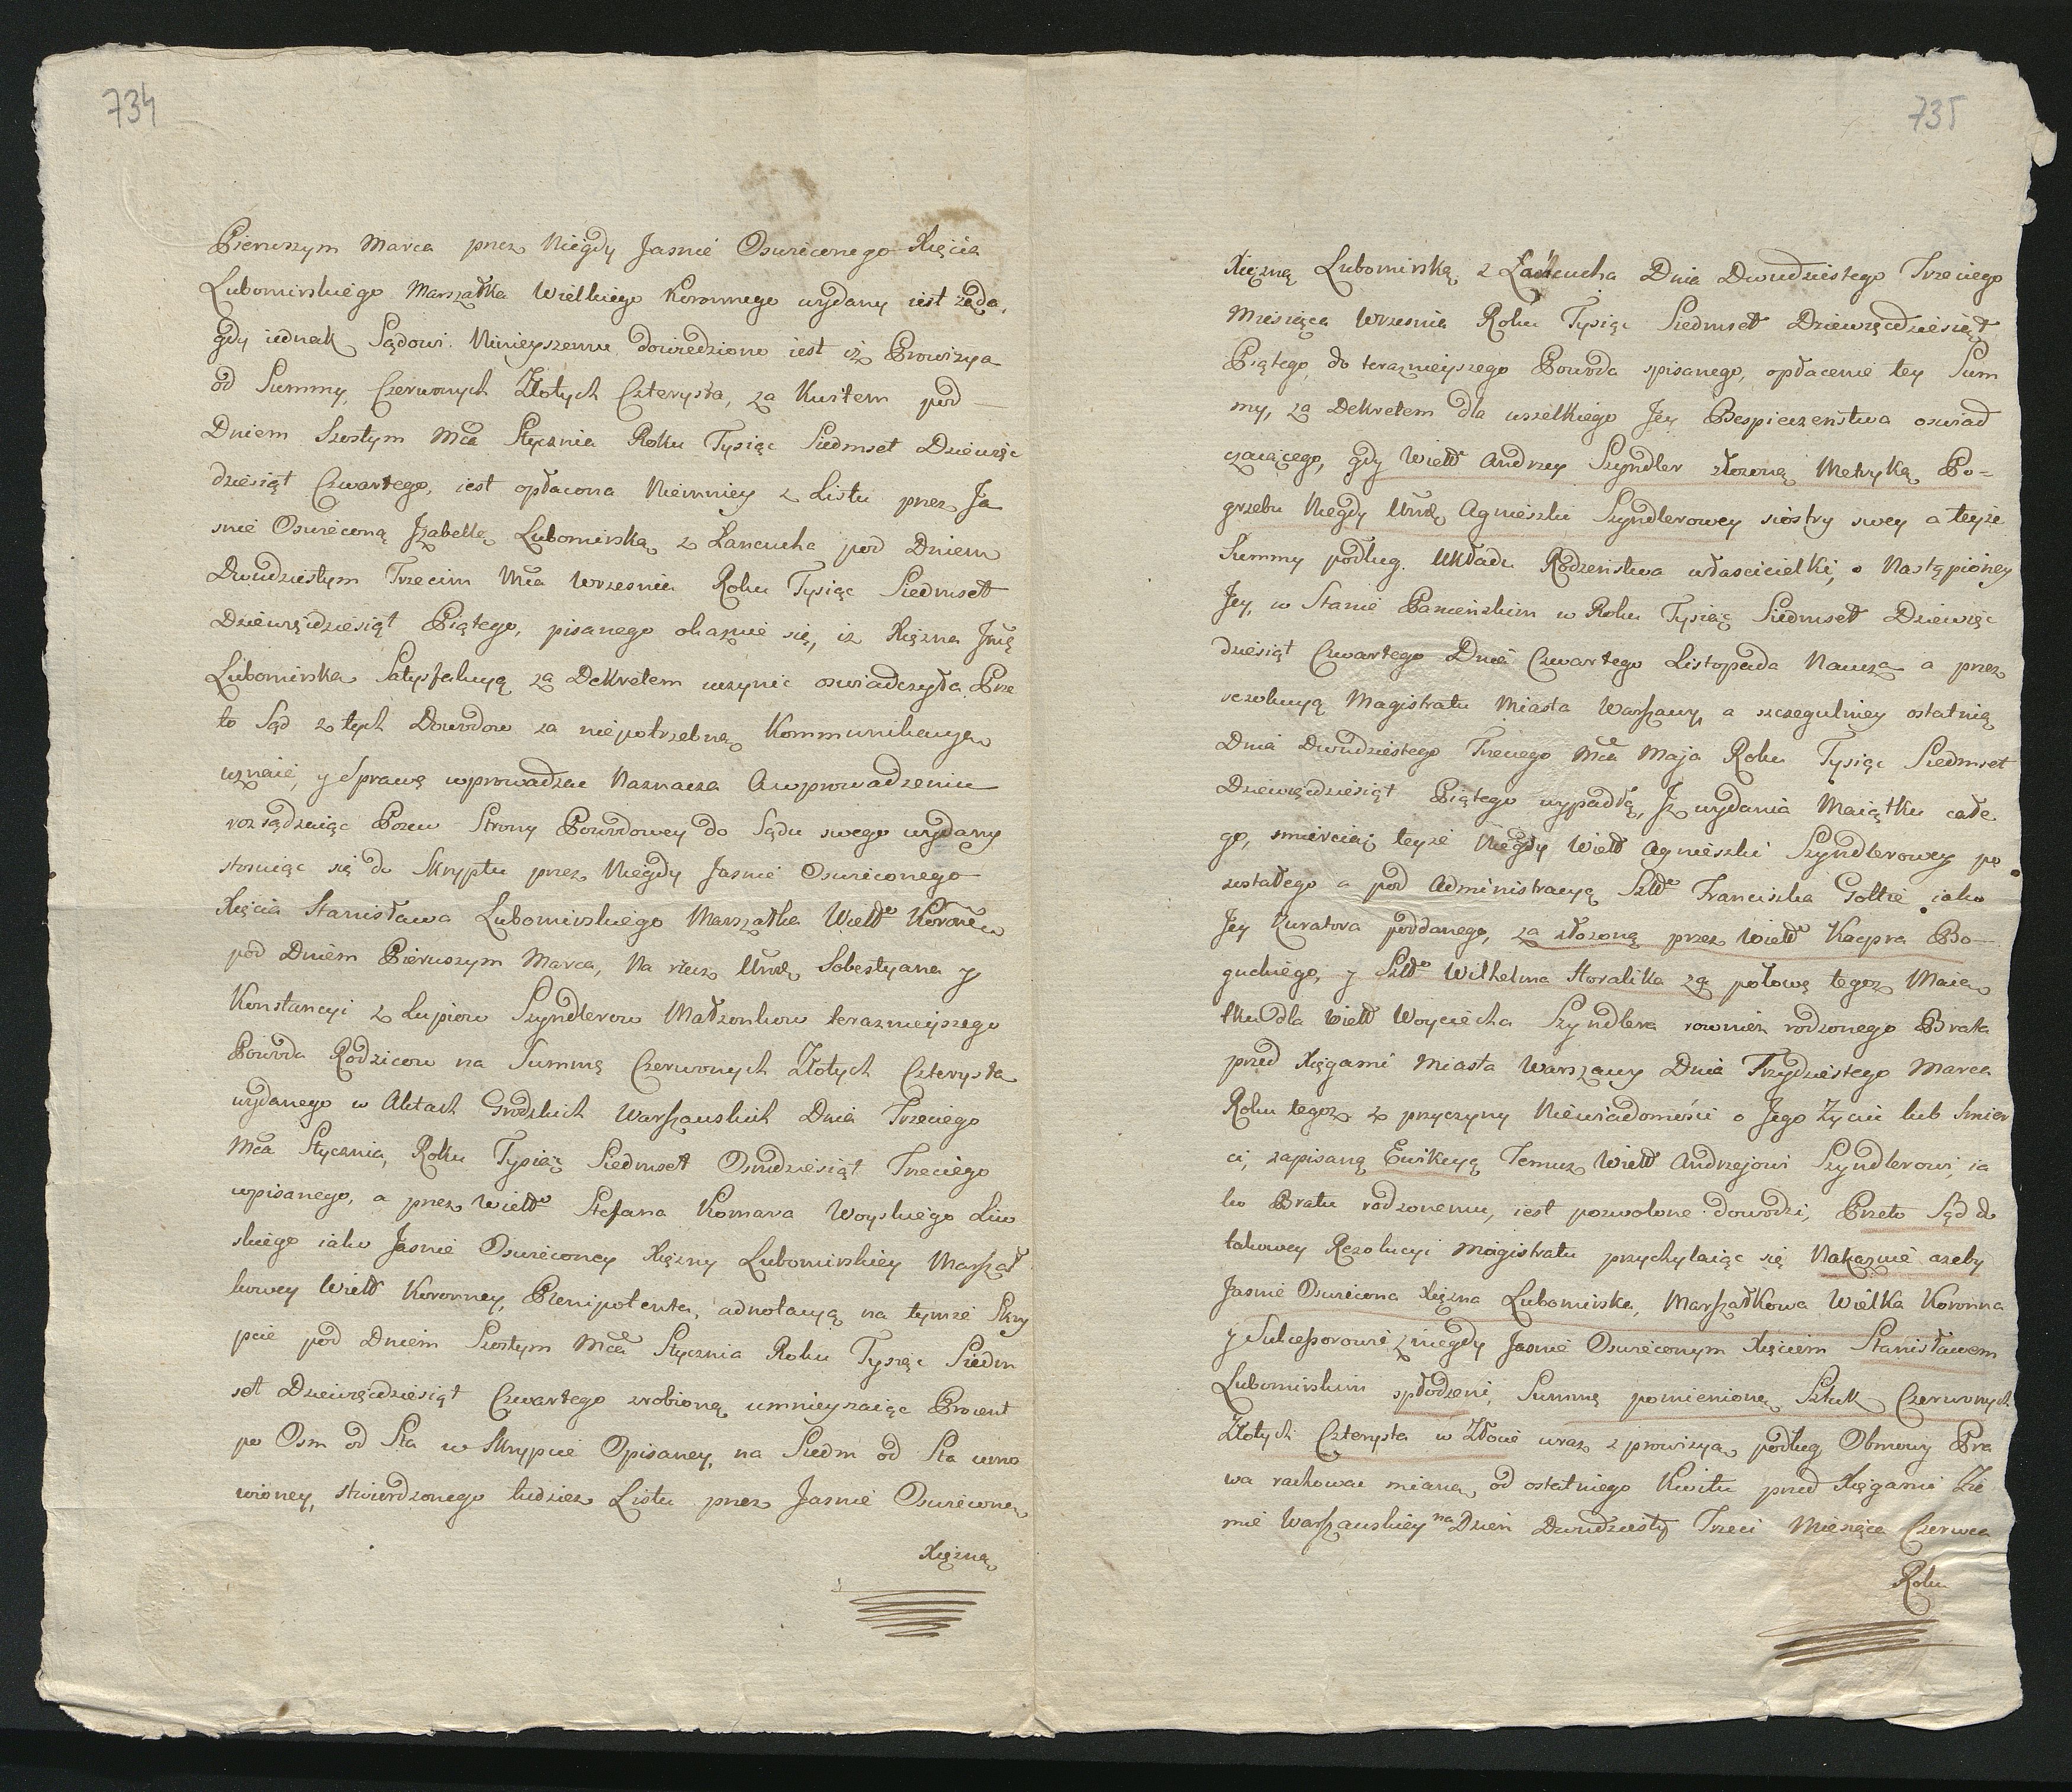 734
Pierwszym Marca przez Niegdy Jasnie Oswieconego Xięcia
Lubomirskiego Marszałka Wielkiego Koronnego wydany iest żąda,
gdy iednak Sądowi Ninieyszemu dowiedziono iest iż Prowizya
od Summy Czerwonych Złotych Czterysta, za Kwitem pod
Dniem Szostym Mca Stycznia Roku Tysiąc Siedmset Dziewięc
dziesiąt Czwartego, iest opłacona Niemniey z Listu przez Ja
snie Oswieconą Jzabellę Lubomirską z Łancucha pod Dniem
Dwudziestym Trzecim Mca Wrzesnia Roku Tysiąc Siedmset
Dziewięćdziesiąt Piątego, pisanego okazuie się, iż Xiężna Jmę
Lubomirska Satysfakcyą za Dekretem uczynic oswiadczyła. Prze
to Sąd z tych Dowodow za niepotrzebną Kommunikacyą
uznaie, y Sprawę wprowadzac Naznacza A wprowadzeniu
rozsądzaiąc Pozew Strony Powodowey do Sądu swego wydany
stosuiąc się do Skryptu przez Niegdy Jasnie Oswieconego
Xięcia Stanisława Lubomirskiego Marszałka Wielkgo Koronn
pod Dniem Pierwszym Marca, Na rzecz Sobestyana y
Konstancyi z Lupiow Szyndlerow Małżonkow teraznieyszego
Powoda Rodzicow na Summę Czerwonych Złotych Czterysta
wydanego w Aktach Grodzkich Warszauskich Dnia Trzeciego
Mca Stycznia, Roku Tysiąc Siedmset Osmdziesiąt Trzeciego
wpisanego, a przez Wielkgo Stefana Komara Woyskiego Liw
skiego iako Jasnie Oswieconey Xiężny Lubomirskiey Marszał
kowey Wielk Koronney, Plenipotenta, adnotacyą na tymże Skry
pcie pod Dniem Szostym Mca Stycznia Roku Tysiąc Siedm
set Dziewięćdziesiąt Czwartego zrobioną umnieyszaiąc Procent
po Osm od Sta w Skrypcie Opisaney, na Siedm od Sta umo
wioney, stwierdzonego tudzież Listu przez Jasnie Oswieconą
Xiężną
735
Xiężną Lubomirską z Łancucha Dnia Dwudziestego Trzeciego
Miesiąca Wrzesnia Roku Tysiąc Siedmset Dziewięćdziesiąt
Piątego, do teraznieyszego Powoda spisanego, opłacenie tey Sum
my, za Dekretem dla wszelkiego Jey Bespieczenstwa oswiad
czaiącego, gdy Wielk Andrzey Szyndler złożoną Metryką Po-
grzebu Niegdy Agnieszki Szyndlerowey siostry swey a teyże
Summy podług Układu Rodzeństwa własicielki, o Nastąpioney
Jey, w Stanie Panienskim w Roku Tysiąc Siedmset Dziewięc
dziesiąt Czwartego Dnia Czwartego Listopada Naucza a przez
rezolucyą Magistratu Miasta Warszawy a szczegulniey ostatnią
Dnia Dwudziestego Trzeciego Mca Maja Roku Tysiąc Siedmset
Dziewięćdziesiąt Piątego wypadłą, Jż wydania Maiątku całe
go, smiercią teyże Niegdy Wielk Agnieszki Szyndlerowey po
zostałego a pod Administracyą Franciszka Goltie iako
Jey Kuratora poddanego, za złożoną przez Wielk Kacpra Bo-
guckiego, y Wilhelma Horalika za połowę tegoż Maią
tku dla Wielk Woyciecha Szyndlera rownież rodzonego Brata
przed Xięgami Miasta Warszawy Dnia Trzydziestego Marca
Roku tegoż z przyczyny Niewiadomości o Jego Życiu lub Smier
ci, zapisaną Ewikcyą Temuż Wielk Andrzejowi Szyndlerowi, ia
ko Bratu rodzonemu, iest pozwolone dowodzi, Przeto Sąd do
takowey Rezolucyi Magistratu przychylaiąc się Nakazuie azeby
Jasnie Oswiecona Xiężna Lubomirska, Marszałkowa Wielka Koronna
y Sukcessorowie z niegdy Jasnie Oswieconym Xięciem Stanisławem
Lubomirskim spłodzeni, Summę pomienioną Sztuk Czerwonych
Złotych Czterysta w Złocie wraz z prowizyą podług Obmowy Pra
wa rachowac mianą, od ostatniego Kwitu przed Xięgami Zie
mie Warszauskiey na Dzien Dwudziesty Trzeci Miesiąca Czerwca
Roku